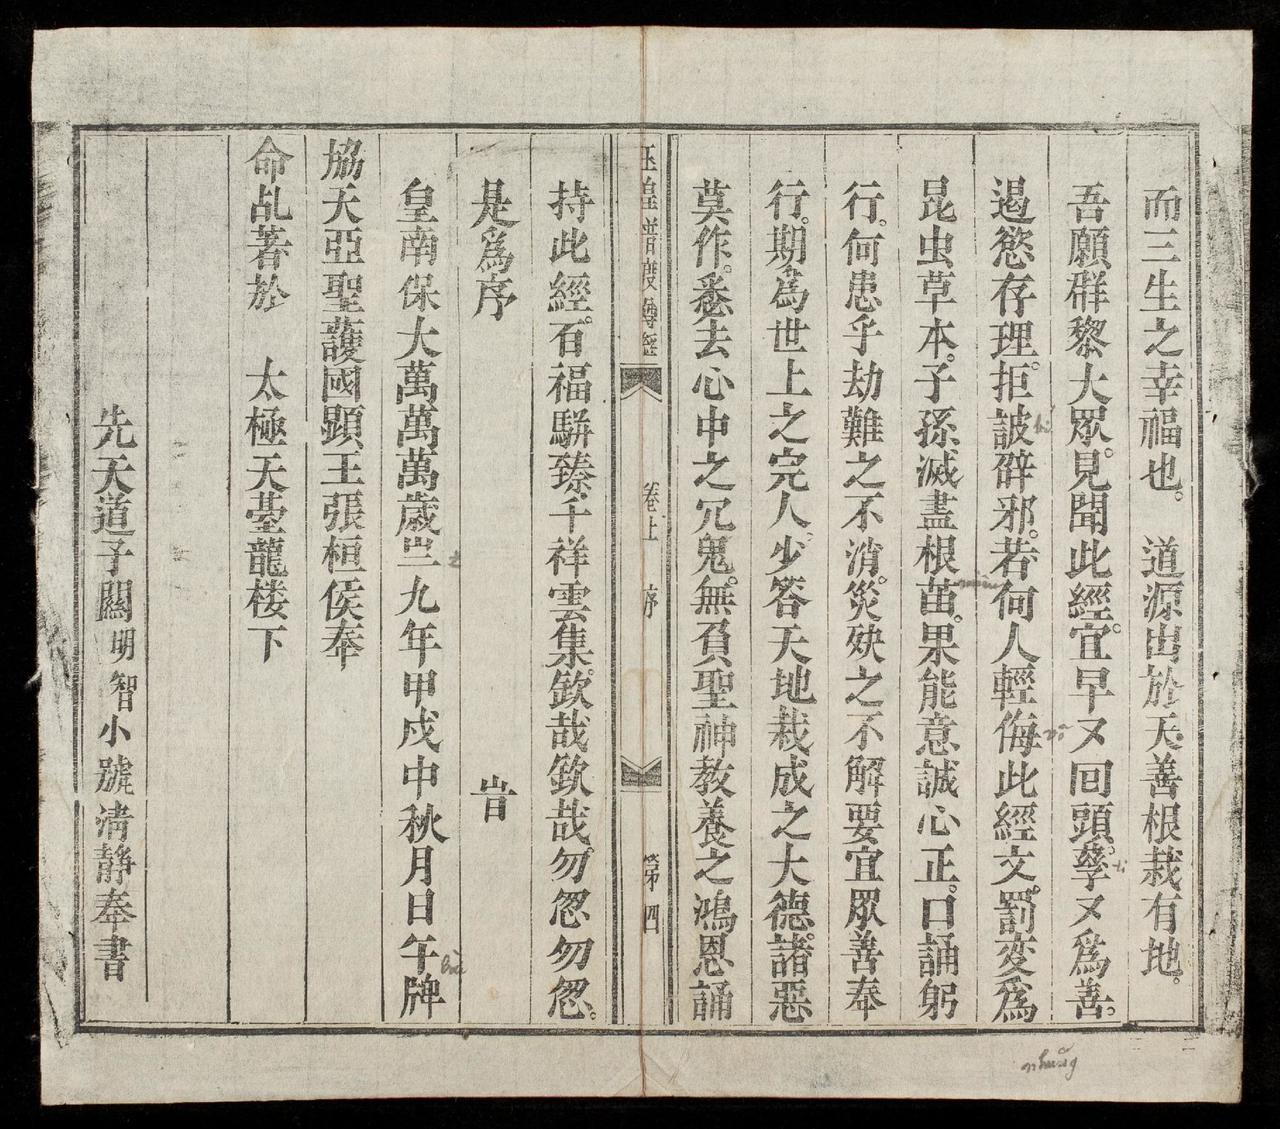 而三生之幸福也。　道源出於天。善根栽有地。
吾願群黎大眾。見聞此經。宜早又回頭。孳又爲善。
遏慾存理。拒詖辟邪。若何人輕侮此經文。罰变爲
昆虫草本。子孫滅盡根苗。果能意誠心正。口誦躬
行。何患乎劫難之不消。災殃之不解。要宜眾善奉
行。期為世上之完人。少答天地栽成之大德。諸惡
莫作。悉去心中之冗鬼。無負聖神教養之鴻恩。誦
玉皇普度尊經　卷上　序　第四
持此經。百福駢臻。千祥雲集。欽哉欽哉。勿忽勿忽。
是爲序　旹
皇南保大萬萬萬歲之九年甲戌中秋月日午牌
協天亞聖護國顕王張桓侯奉
命乩著於　太極天臺龍楼下
先天道子關明智小號清静奉書
nhưỡng